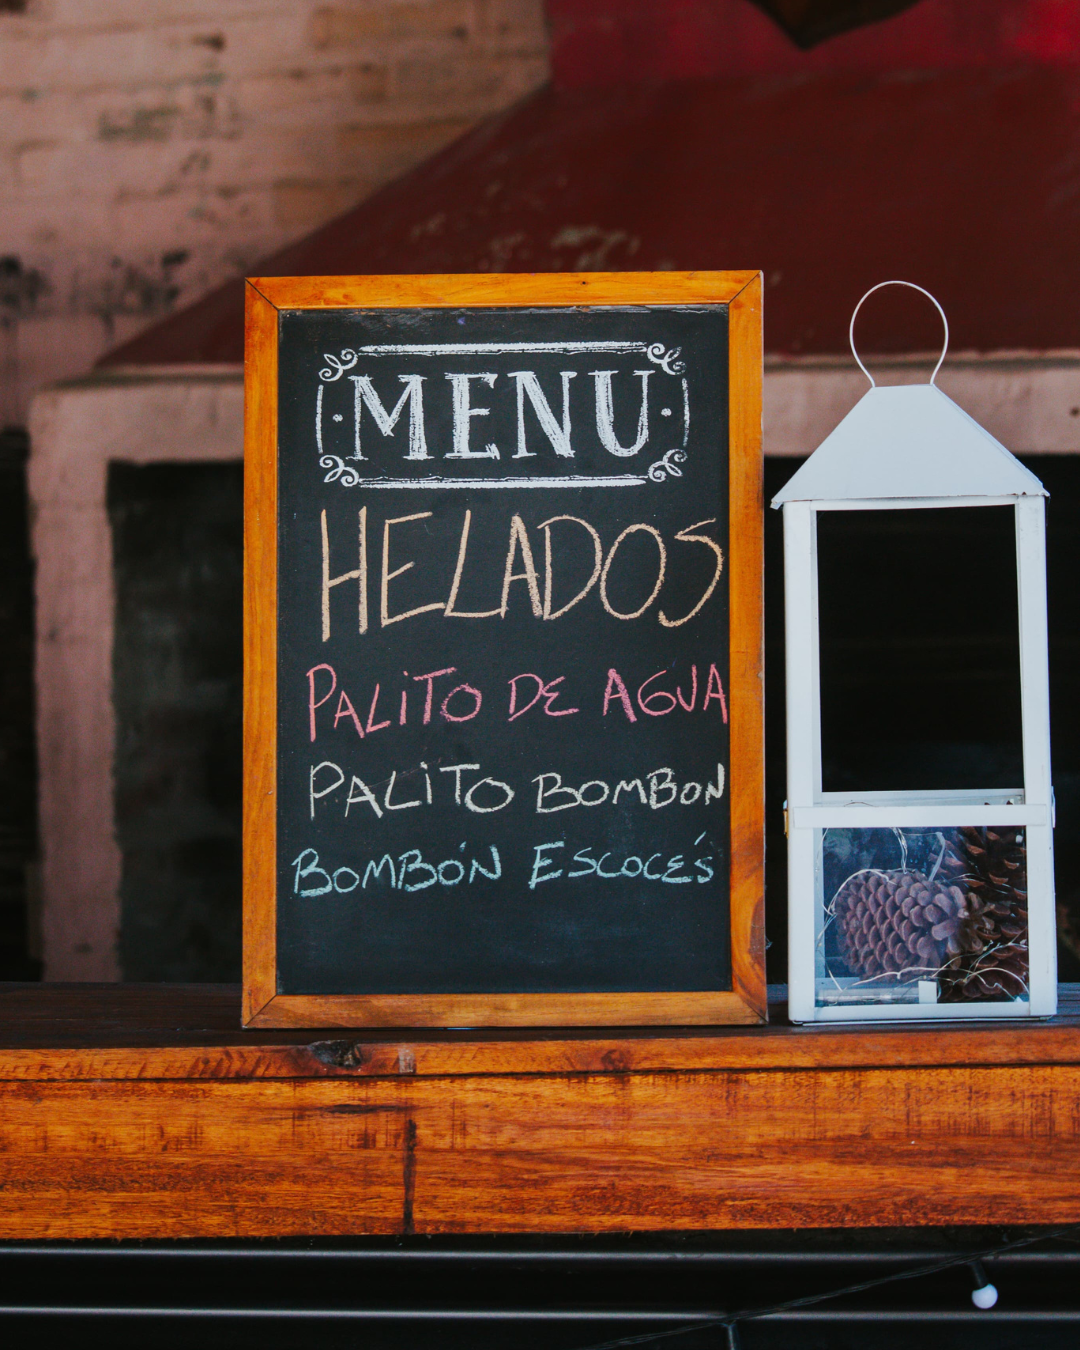 MENU
HELADOS
PALiTO DE AGUA
PALiTO BOMBON
BOMBÓN ESCOCÉS